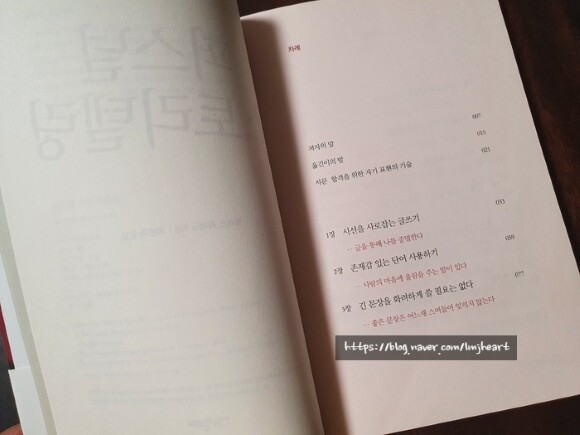 차례
저자의 말 007
옮긴이의 말 015
서문 합격을 위한 자기 표현의 기술 021
1장 시선을 사로잡는 글쓰기 033
… 글을 통해 나를 증명한다
2장 존재감 있는 단어 사용하기 059
… 사람의 마음에 울림을 주는 말이 있다
3장 긴 문장을 화려하게 쓸 필요는 없다 077
… 좋은 문장은 어느새 스며들어 잊히지 않는다
https://blog.naver.com/lmjheart